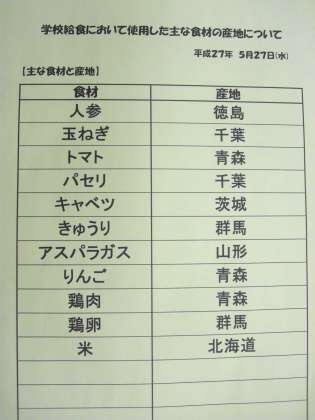 学校給食において使用した主な食材の産地について
平成27年 5月27日(水)
【主な食材と産地】
食材 産地
人参 徳島
玉ねぎ 千葉
トマト 青森
パセリ 千葉
キャベツ 茨城
きゅうり 群馬
アスパラガス 山形
りんご 青森
鶏肉 青森
鶏卵 群馬
米 北海道